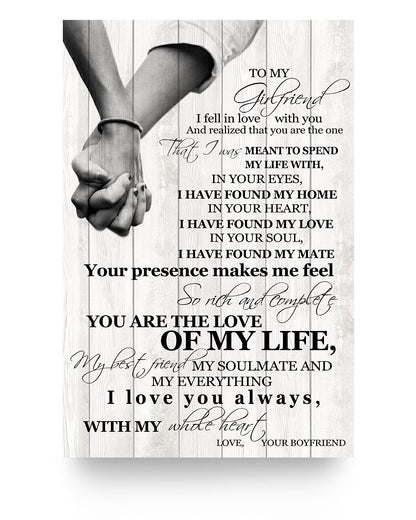 TO MY
Girlfriend
I fell in love with you
And realized that you are the one
That I was MEANT TO SPEND
MY LIFE WITH,
IN YOUR EYES,
I HAVE FOUND MY HOME
IN YOUR HEART,
I HAVE FOUND MY LOVE
IN YOUR SOUL,
I HAVE FOUND MY MATE
Your presence makes me feel
So rich and complete
YOU ARE THE LOVE
OF MY LIFE,
My best friend MY SOULMATE AND
MY EVERYTHING
I love you always,
WITH MY whole heart
LOVE, YOUR BOYFRIEND